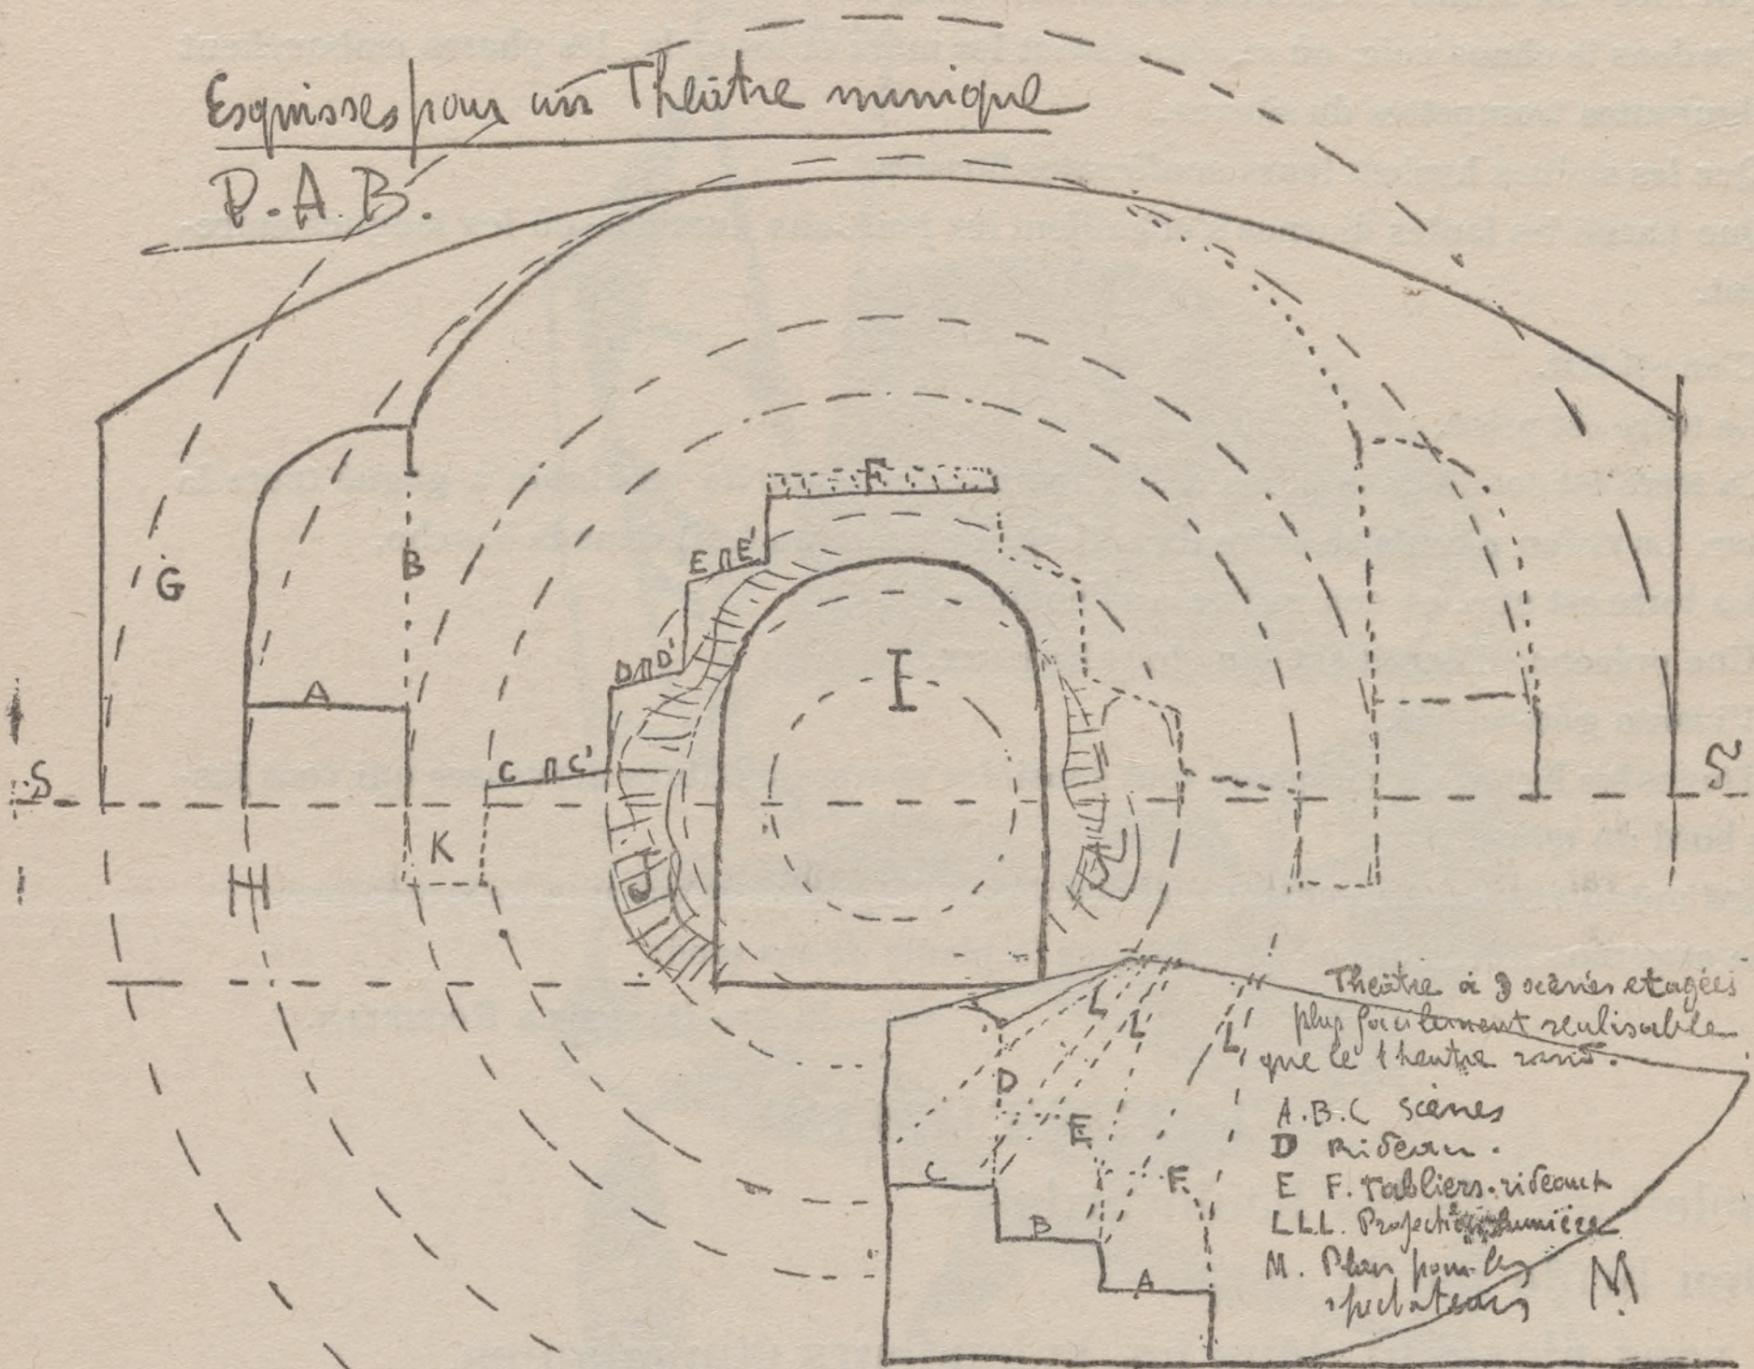 Esquisses pour un Théâtre nunique
P.A.B.
F
E E'
B
G
D D'
I
A
S
C C'
S
K
H
J
Théâtre à 3 scènes etagées
plus facilement realisable
que le theatre rond.
L
L
L
D
A.B.C Scènes
E
D Rideau.
F
E F. Tabliers-rideaux
C
LLL. Projection lumière
B
M. Plan pour les
spectateurs
A
M